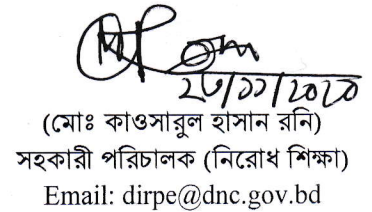 ২৩/১১/২০২০
(মোঃ কাওসারুল হাসান রনি)
সহকারী পরিচালক (নিরোধ শিক্ষা)
Email: dirpe@dnc.gov.bd